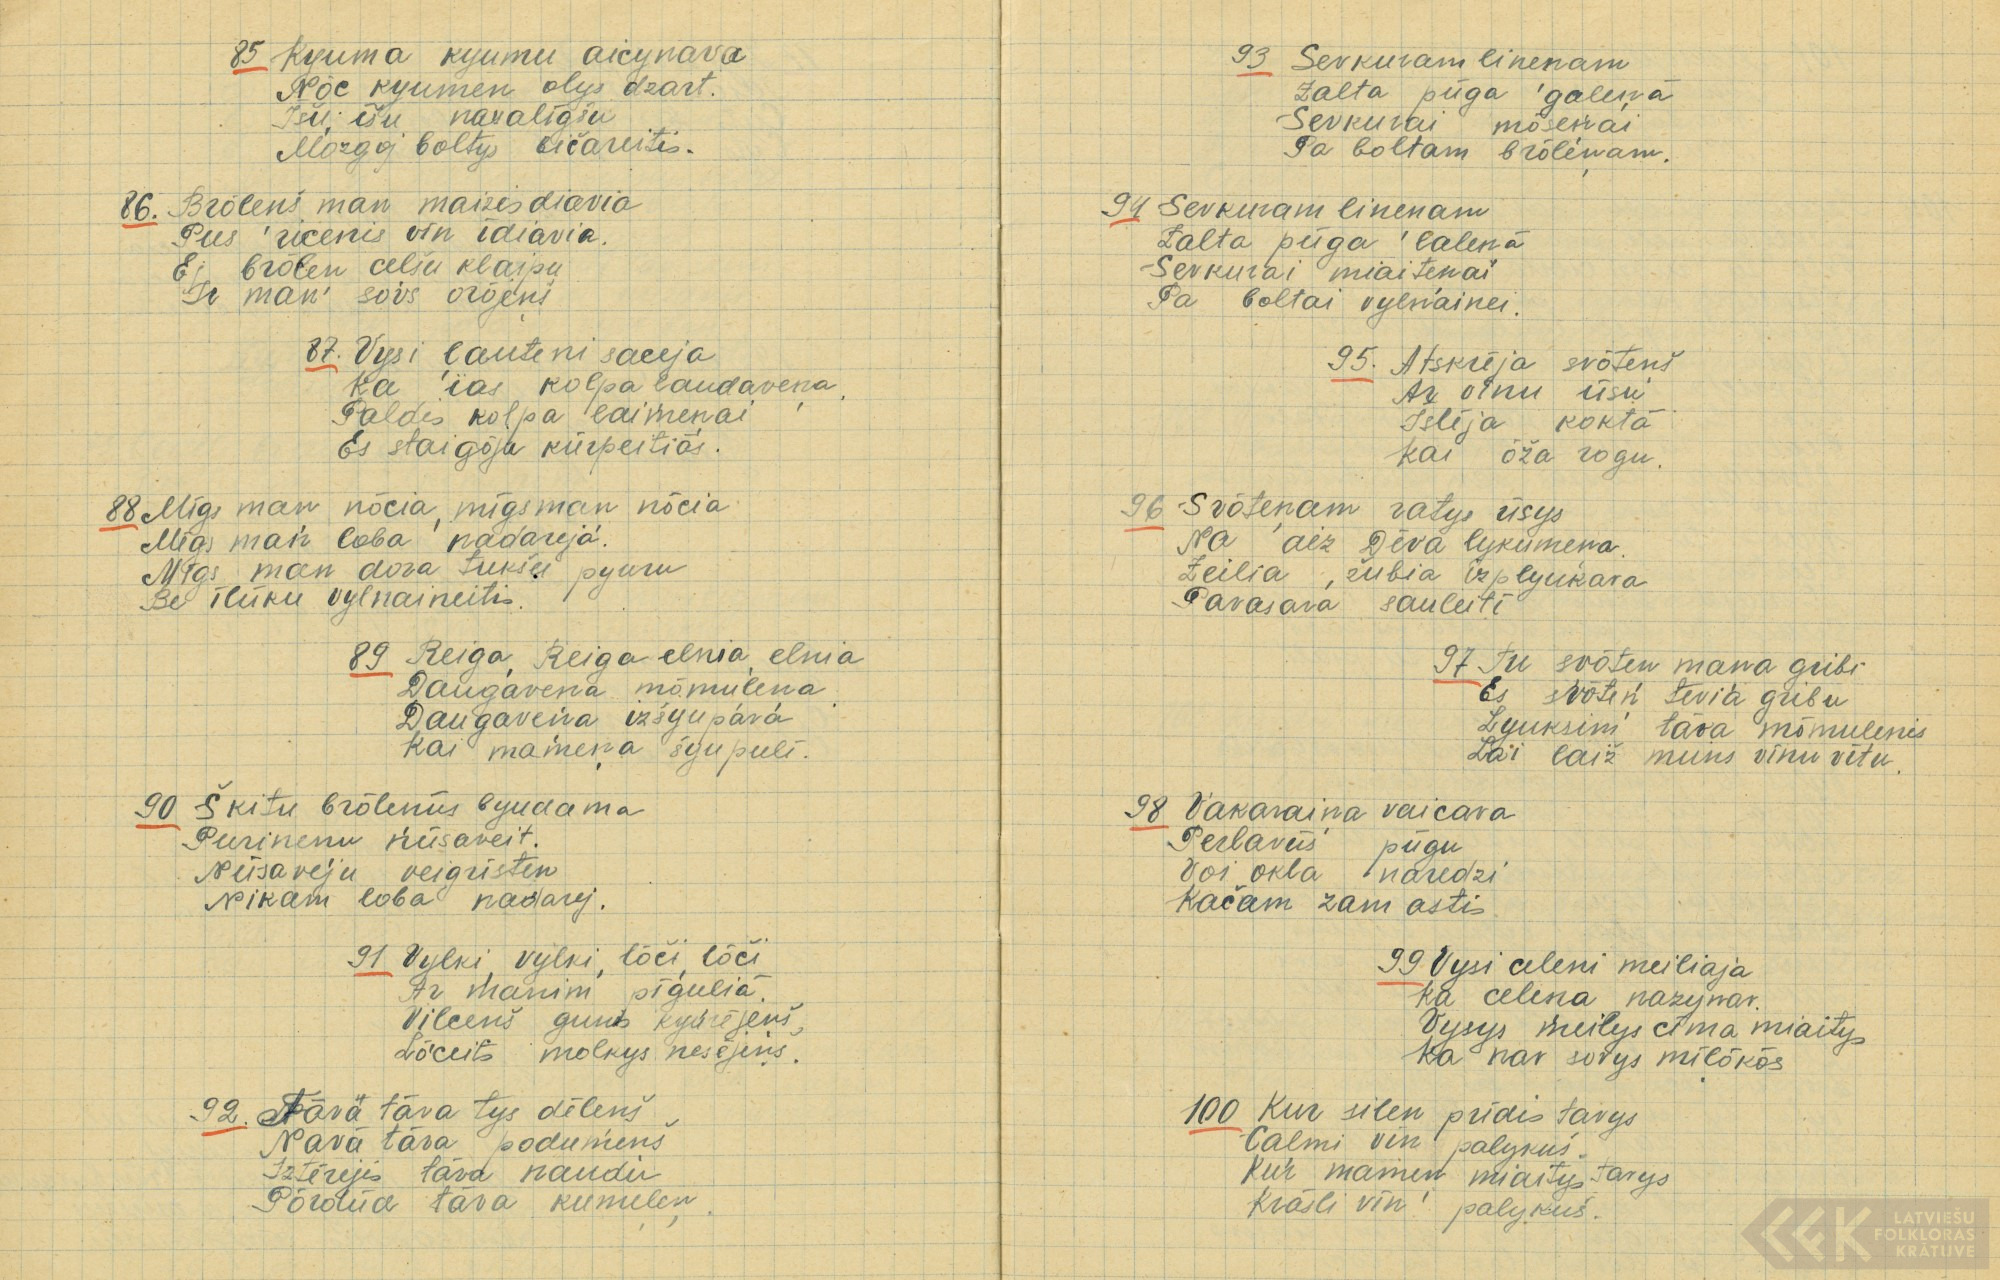 85 Kyuma kyumu aicynava
Nōc kyumeņ olys dzart.
Īšu, īšu navalīgšu
Mozgoj boltys bičareitis.
86. Brōleņš man maizis diavia
Pus ricenis vin īdiavia.
Ej brōleņ celšu klaipu
Ir maņ sovs orōjeņš
87. Vysi ļauteni saceja
Ka ias kolpa ļaudaveņa,
Paldis kolpa laimeņai
Es staigōju kūrpeitiōs.
88 Mīgs man nōcia, mīgs man nōcia
Mīgs maņ loba nadareja.
Mīgs man dora tukšu pyuru
Be īlūku vylnaineitis.
89 Reiga, Reiga elnia, elnia
Daugaveņa mōmuleņa.
Daugaveņa izšyupava
Kai mameņa šyupulī.
90 Šķitu brōleņūs byudama
Puriņeņu nūsaveit.
Nūsaveju veigristeņ
Nikam loba nadarej.
91 Vylki, vylki, lōči, lōči
Ar maņim pīguliā.
Vilceņš guņs kyurejeņš,
Lōceits molkys nesējeņš.
92. Navā tāva tys dēleņš
Navā tāva podumeņš
Iztērejis tāva naudu
Pōrdūd tāva kumeļeņ.
93 Servkuram lineņam
Zalta pūga galeņā
Servkurai mōseņai
Pa boltam brōleņam.
94 Servkuram lineņam
Zalta pūga galeņā
Servkurai miaiteņai
Pa boltai vylnainei.
95. Atskrēja svōteņš
Ar vīnu ūsu
Īslēja kaktā
Kai ōža rogu.
96 Svōteņam ratys ūsys
Na aiz Dēva lykumeņa.
Zeilia, žubia izplyukava
Pavasara sauleitī
97 Tu svōteņ mana gribi
Es svōteņ tevia gribu
Lyuksim tāva mōmulenis
Lai laiž muns vīnu vītu.
98 Vakaraiņa vaicava
Perlavūs pūgu
Voi okla naredzi
Kačam zam astis
99 Vysi celeņi meiliaja
Ka celeņa nazynav.
Vysys meilys cīma miaitys
Ka nav sovys mīlōkōs
100 Kur sileņ prīdis tavys
Calmi viņ palykuš.
Kur mameņ miaitys tavys
Krāsli viņ palykuš.
LATVIEŠU
FOLKLORAS
KRĀTUVE